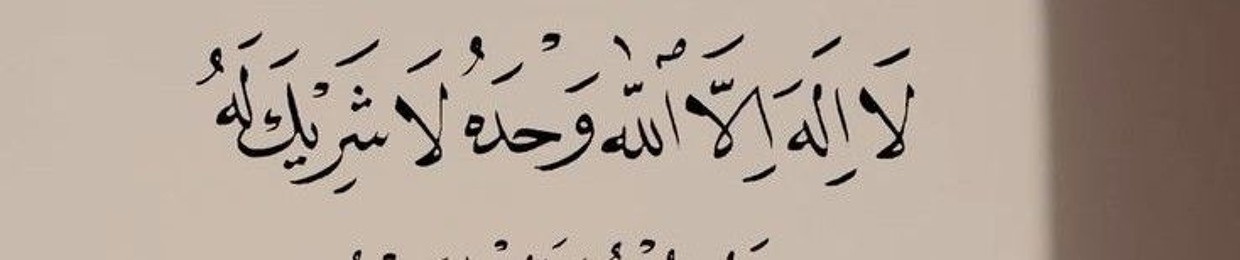 لَا اِلٰهَ اِلَّا ٱللّٰهُ وَحْدَهُ لَا شَرِيْكَ لَهُ